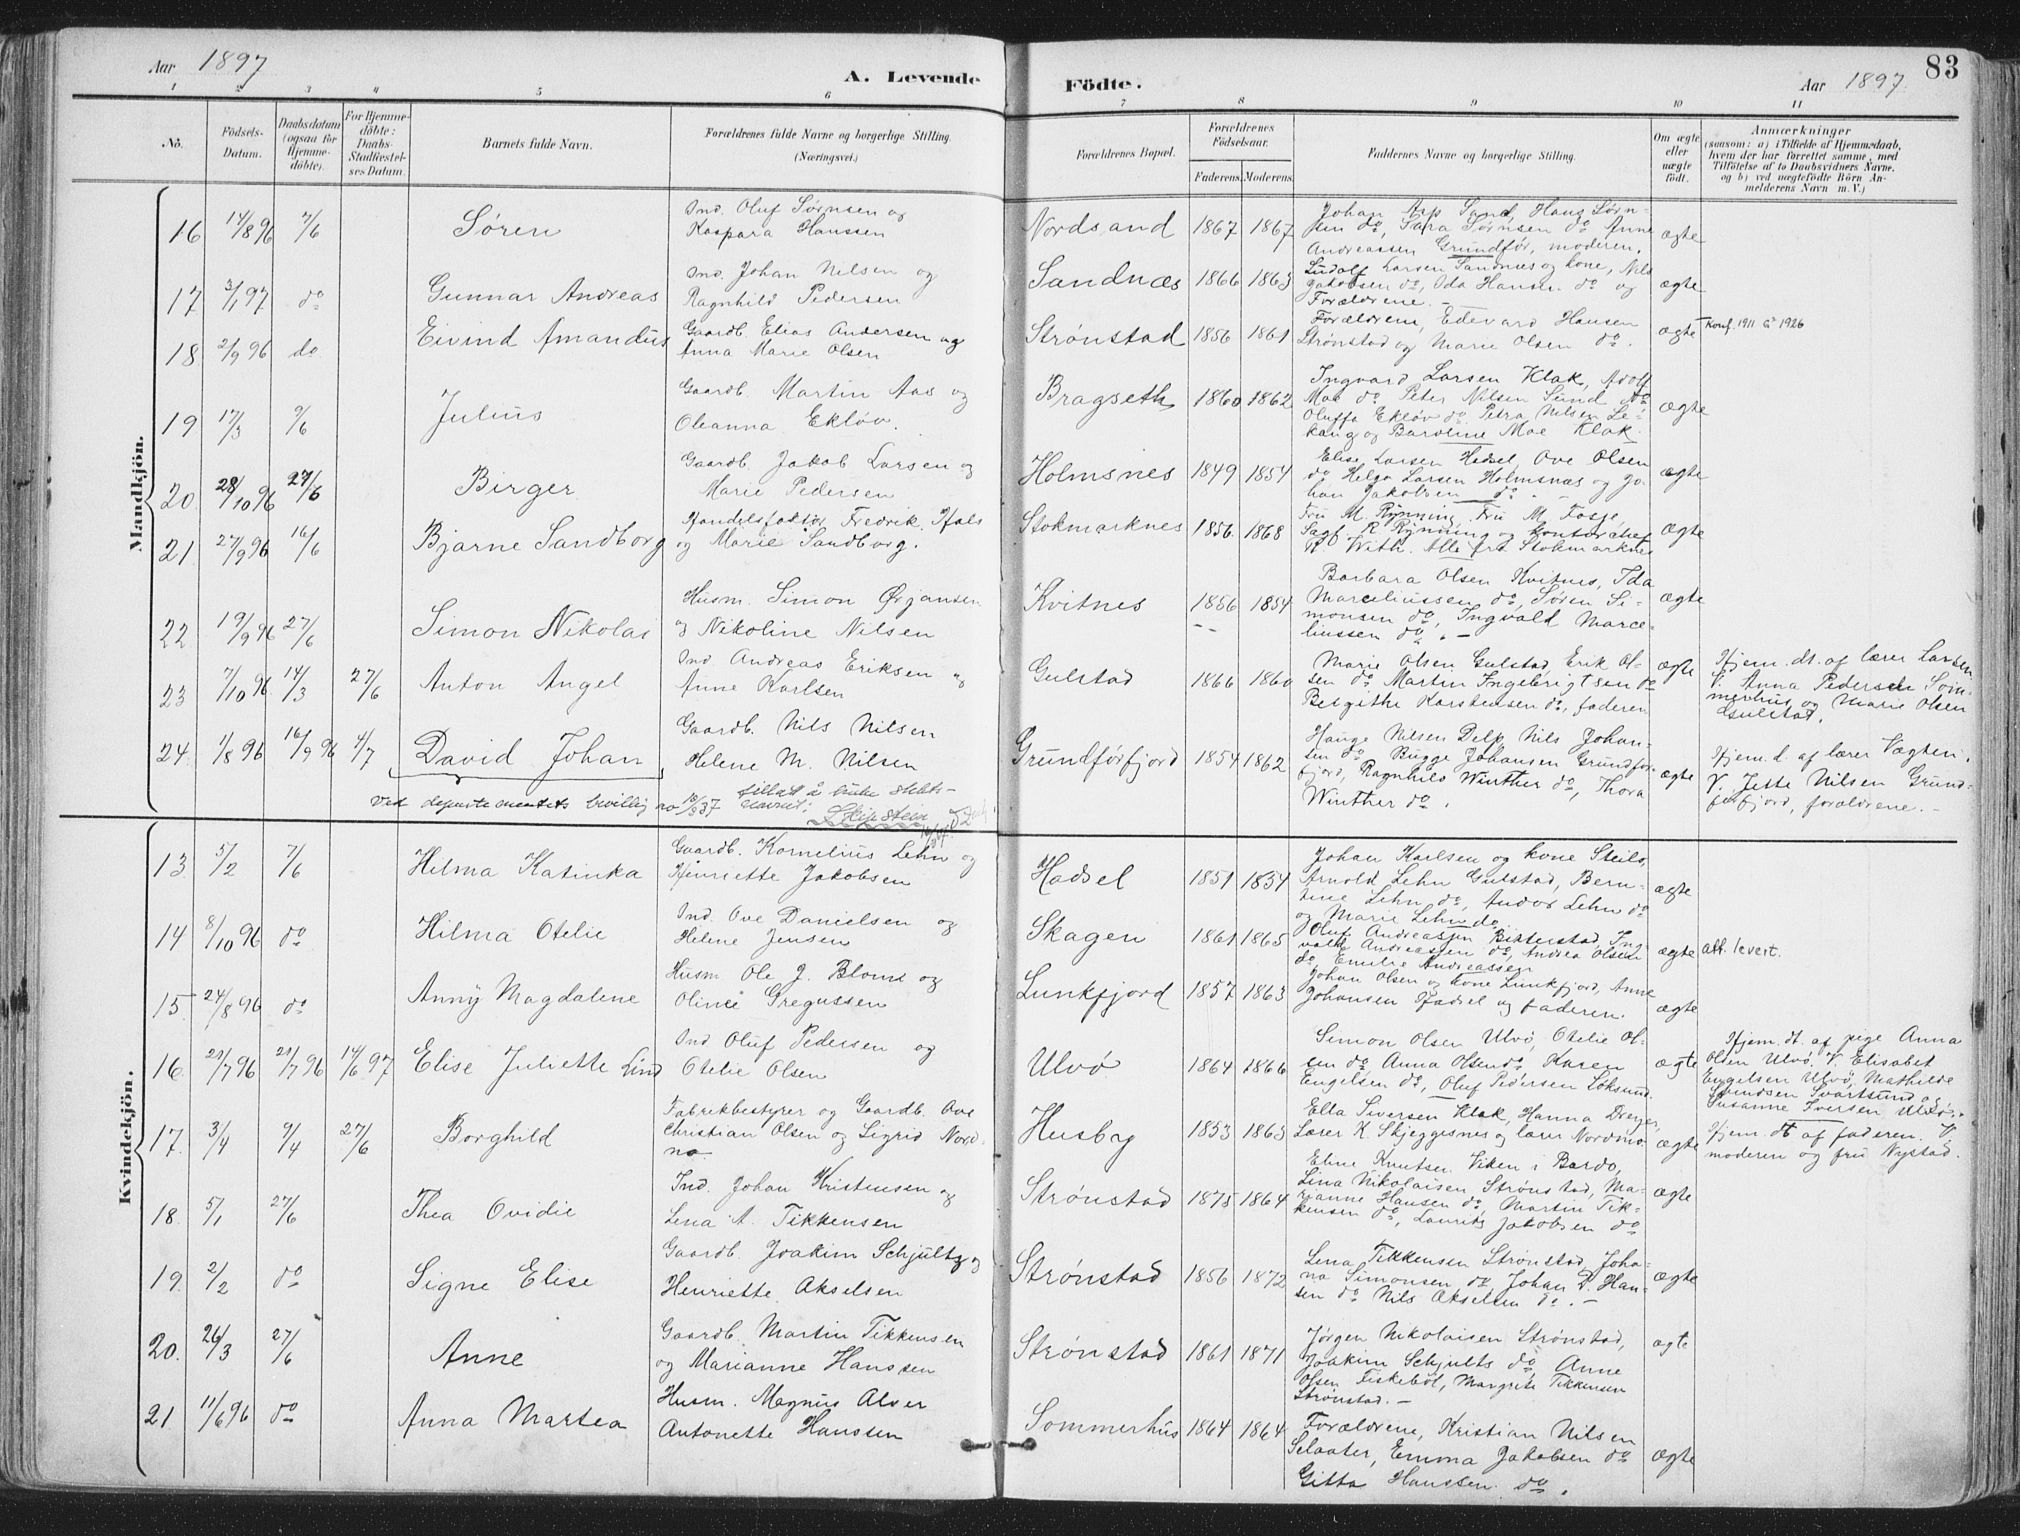 Aar 1897
A. Levende
Födte.
Aar 1897.
83
1 2 3 4 5 6 7 8 9 10 11
No.
Födsels-
Datum.
Daabsdatum
(ogsaa for
Hjemme-
döbte).
For Hjemme-
döbte:
Daabs-
Stadfæstel-
ses Datum.
Barnets fulde Navn.
Forældrenes fulde Navne og borgerlige Stilling.
(Næringsvei.)
Forældrenes Bopæl.
Forældrenes
Födselsaar.
Faderens. Moderens.
Faddernes Navne og borgerlige Stilling.
Om ægte
eller
uægte
födt.
Anmærkninger
(saasom: a) i Tilfælde af Hjemmedaab,
hvem der har forrettet samme, med
Tilföielse af to Daabsvidners Navne,
og b) ved uægtefödte Börn An-
melderens Navn m. V.)
Mandkjön.
16 14/8 96 7/6 Søren
Ind. Oluf Sørnsen og
Kaspara Hanssen
Nordsand 1867 1867
Johan Asp Sand, Hans Sørn-
sen do, Sara Sørnsen do Anne
Andreassen Grundfør, moderen.
ægte
17 3/1 97 do Gunnar Andreas
Ind. Johan Nilsen og
Ragnhild Pedersen
Sandnæs 1866 1863
Ludolf Larsen Sandnæs og kone, Nils
Jakobsen do, Ida Hansen do og
Forældrene. –
ægte
18 2/9 96 do Eivind Amandus
Gaardb. Elias Andersen og
Anna Marie Olsen
Strønstad 1856 1861
Forældrene, Edevard Hansen
Strønstad og Marie Olsen do.
ægte
Konf. 1911 1926
19 17/3 9/6 Julius
Gaardb. Martin Aas og
Oleanna Ekløv.
Bragseth 1860 1862
Ingvard Larsen Klak, Adolf
Moe do Peter Nilsen Sund do
Oluffa Ekløv do Petra Nilsen Le-
kang og Baroline Moe Klak.
ægte
20. 28/10 96 27/6 Birger
Gaardb. Jakob Larsen og
Marie Pedersen
Holmsnes 1849 1854
Elise Larsen Hadsel, Ove Olsen
do, Helga Larsen Holmsnæs og Jo-
han Jakobsen do
ægte
21. 27/9 96 16/6 Bjarne Sandborg
Handelsfaktor Fredrik Hals
og Marie Sandborg.
Stokmarknes 1856. 1868
Fru M. Rynning Fru M Fosse
Sagf. R Rynning og Kontorchef
R With. Alle fra Stokmarknes
ægte
22 19/9 96 27/6 Simon Nikolai
Husm. Simon Ørjansen
og Nikoline Nilsen
Kvitnes 1856 1854
Barbara Olsen Kvitnes, Ida
Marceliussen do, Søren Si-
monsen do, Ingvald Marce-
liussen do. –
ægte
23 7/10 96 14/3 27/6 Anton Angel
Ind. Andreas Eriksen og
Anne Karlsen
Gulstad 1866 1860
Marie Olsen Gulstad, Erik Ol-
sen do Martin Ingebrigtsen do
Beigithe Karstensen do, faderen
ægte
Hjem. dt. af lærer Larsen
V. Anna Pedersen Som-
merhus og Marie Olsen
Gulstad.
24. 1/8 96 16/9 96 4/7 David Johan
Gaardb. Nils Nilsen
Helene M. Nilsen
Grundførfjord 1854 1862
Hauge Nilsen Delp, Nils Johan-
sen do Bugge Johansen Grundfør-
fjord, Ragnhild Winther do, Thora
Winther do.
ægte
Hjem. d. af lærer Vegten.
V. Jette Nilsen Grund-
førfjord, forældrene. –
Ved departementets bevillig no 10/3 37 tillat å bruke slekts-
navnet: Skipstein
Kvindekjön.
13. 5/2 7/6 Helma Katinka
Gaardb. Kornelius Lehn og
Henriette Jakobsen
Hadsel 1851 1854
Johan Karlsen og kone Steilo,
Arnold Lehn Gulstad, Bern-
tine Lehn do, Andor Lehn do
og Marie Lehn do
ægte
14 8/10 96 do Hilma Otelie
Ind. Ove Danielsen og
Helene Jensen
Skagen 1861 1865
Oluf Andreassen Bitterstad, Ing-
vald Andreassen do, Andrea Olsen
do, Emilie Andreassen
ægte
att. levert.
15. 24/8 96 do Anny Magdalene
Husm Ole J. Blomd og
Oline Gregussen
Lunkfjord 1857 1863
Johan Olsen og kone Lunkfjord, Anne
Johansen Hadsel og faderen.
ægte
16. 21/7 96 21/7 96 14/6 97 Elise Juliette Lind
Ind Oluf Pedersen og
Otelie Olsen
Ulvø 1864 1866
Simon Olsen Ulvø, Otelie Ol-
sen do Anna Olsen do Karen
Engelsen do, Oluf Pedersen Løksund.
ægte
Hjem. dt. af pige Anna
Olsen Ulvø. V. Elisabet
Engelsen Ulvø, Mathilde
Svendsen Svartsund og
Susanne Iversen Ulvø.
17. 3/4 9/4 27/6 Borghild
Fabrikbestyrer og Gaardb. Ove
Christian Olsen og Sigrid Nord-
no
Husby 1853 1863
Ella Siversen Klak, Hanna Dreyer,
Lærer K. Skjeggesnes og lærer Nordmo.
ægte
Hjem. dt af faderen. V,
moderen og fru Nystad.
18. 5/1 27/6 Thea Ovidie
Ind. Johan Kristensen og
Lena A. Tikkensen
Strønstad 1875 1864
Eline Knutsen Viken i Bardo,
Lina Nikolaisen Strønstad, Ma-
rianne Hansen do, Martin Tik-
kensen do, Laurits Jakobsen do
ægte
19. 2/2 do Signe Elise
Gaardb. Joakim Schjultz og
Henriette Akselsen
Strønstad 1856 1872
Lena Tikkensen Strønstad, Joha-
na Simonsen do Johan D. Han-
sen do Nils Akselsen do. –
ægte
20. 26/3 27/6 Anne
Gaardb. Martin Tikkensen
og Marianne Hanssen
Strønstad 1861 1871
Jørgen Nikolaisen Strønstad,
Joakim Schjults do, Anne
Olsen Fiskebøl, Margrete Tikkensen
Strønstad. –
ægte
21. 11/6 96 do Anna Martea
Husm. Magnus Alver
Antonette Hanssen
Sommerhus 1864 1864
Forældrene, Kristian Nilsen
Selaater, Emma Jakobsen do
Gitta Hanssen. do.
ægte